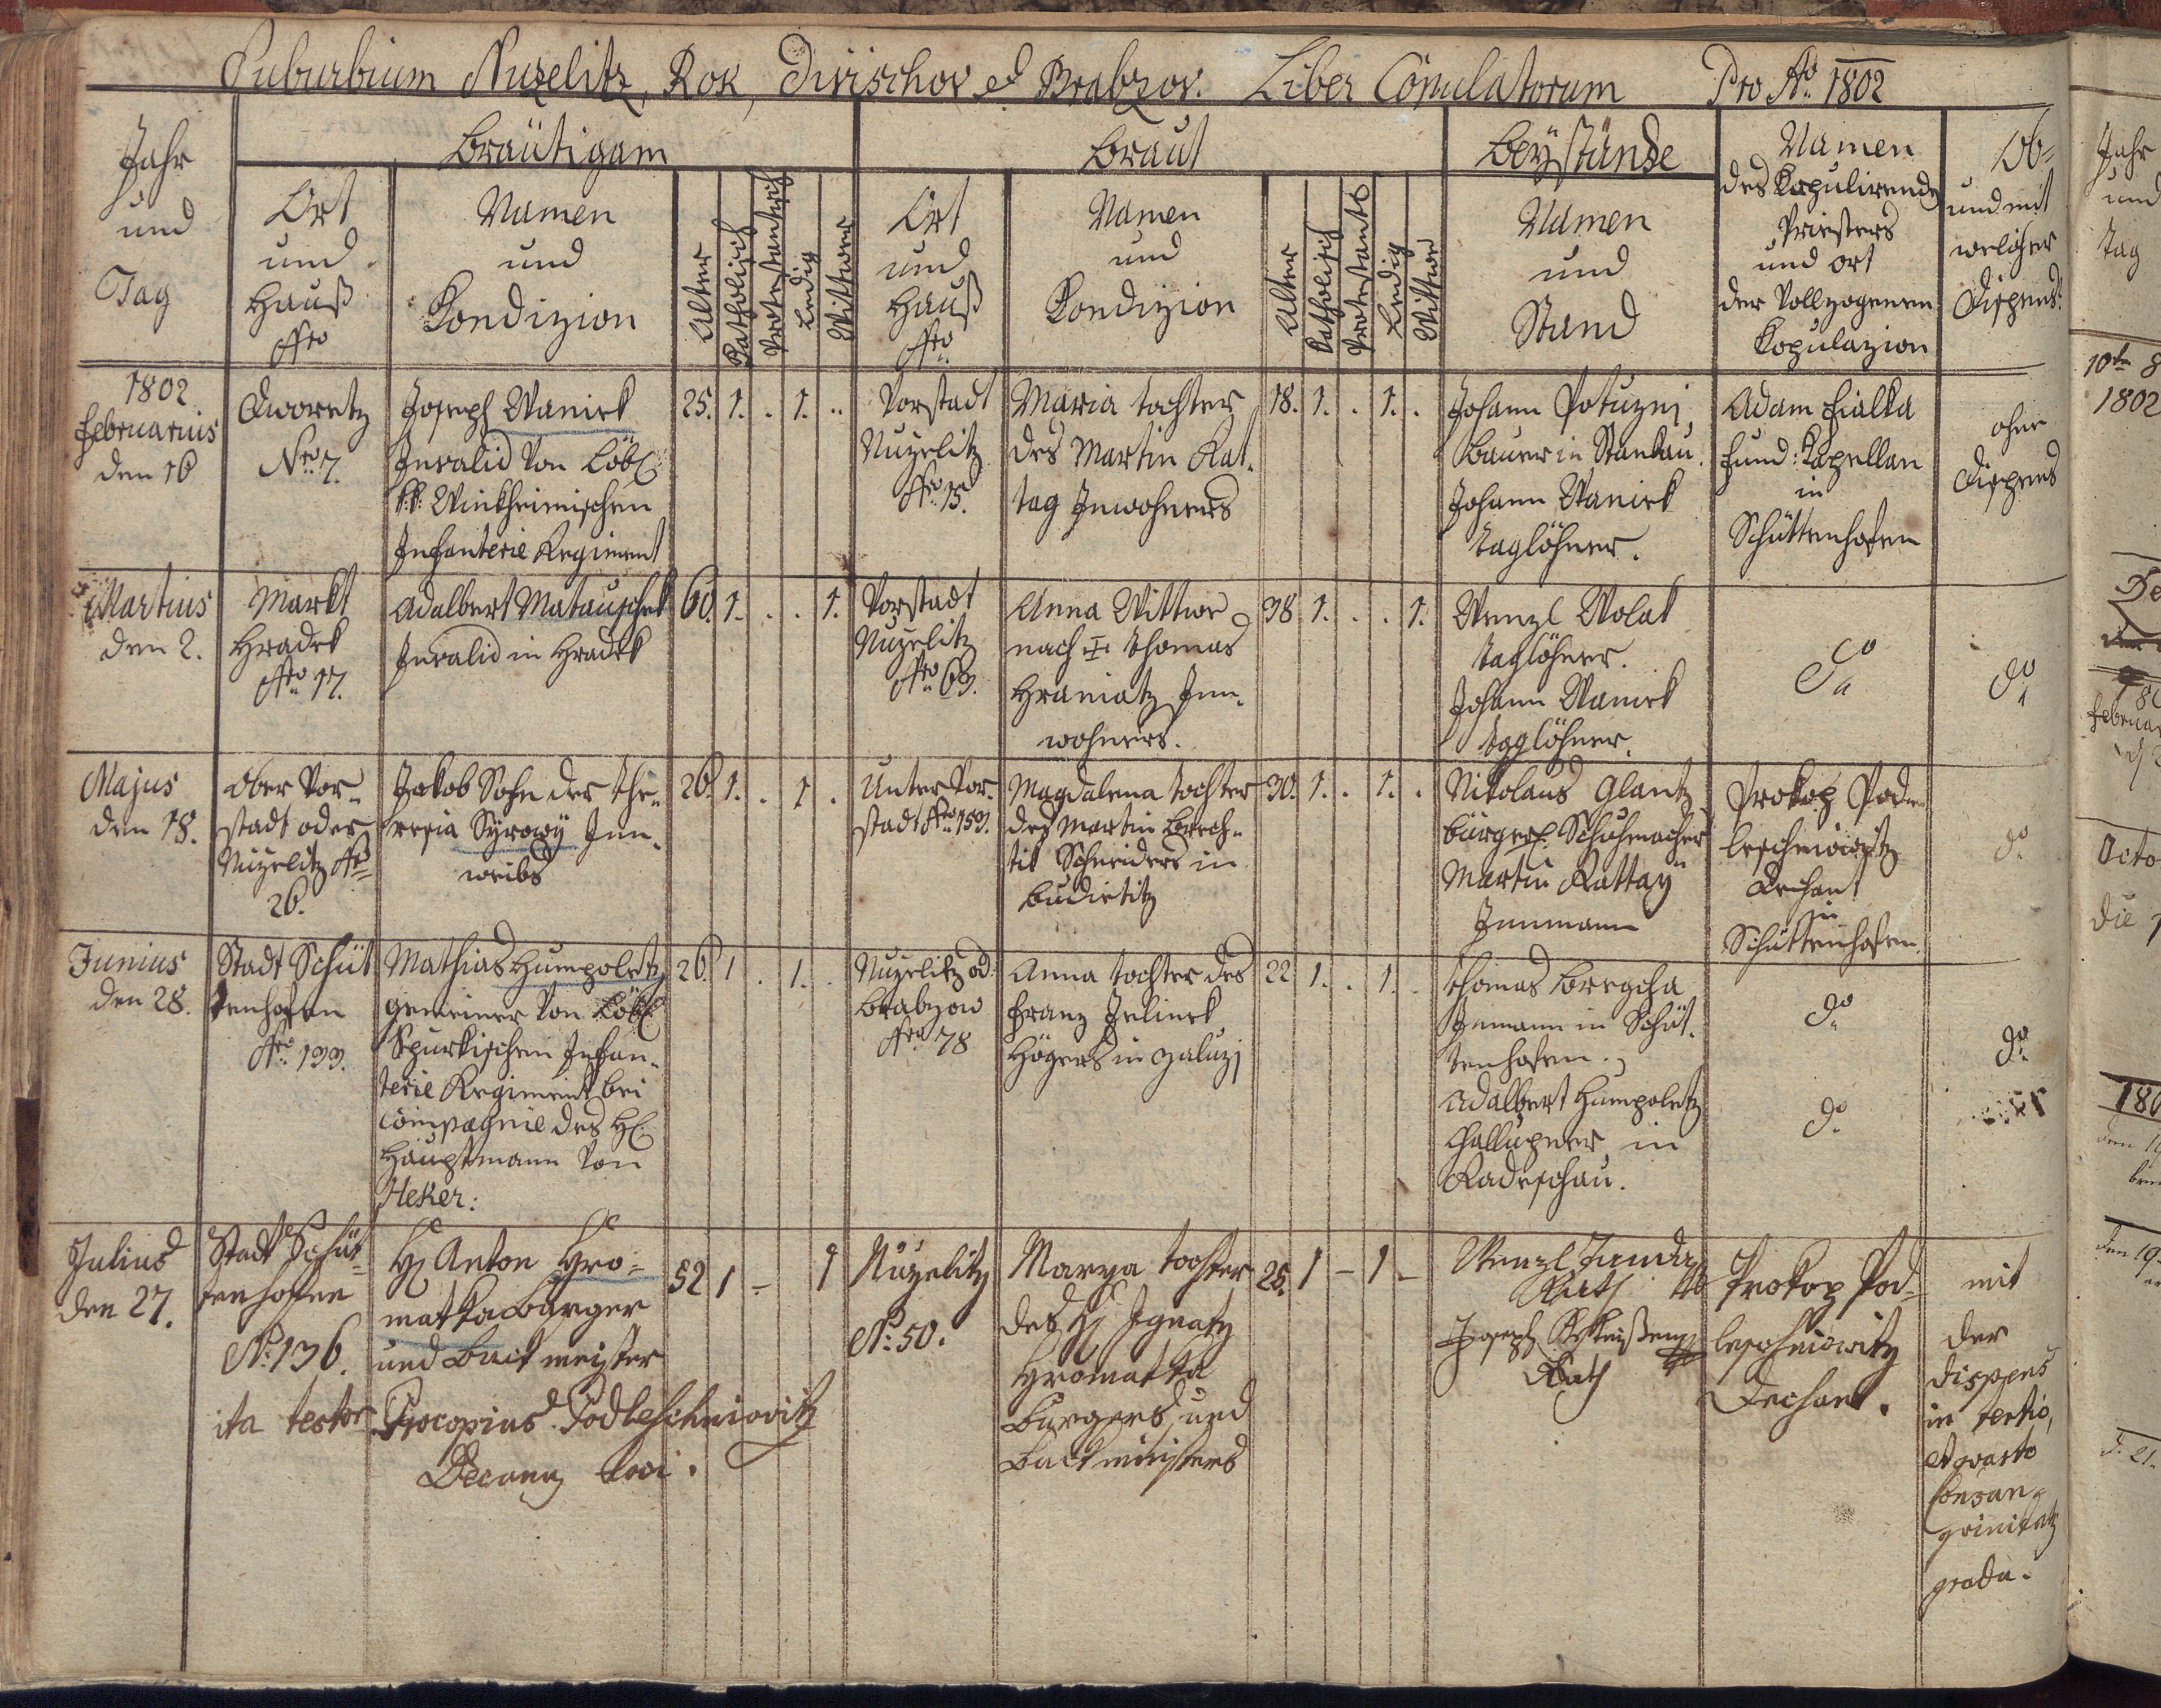 Suburbium Nuzelitz, Rok, Divischov et Brabzov. Liber Copulatorum Pro Ao. 1802
Jahr
und
Tag
Bräutigam
Ort
und
Hauß
Nro
Namen
und
Kondizion
Alter
Katholisch
Protestantisch
Ledig
Wittwer
Braut
Ort
und
Hauß
Nro
Namen
und
Kondizion
Alter
Katholisch
Protestants
Ledig
Wittwe
Beÿstände
Namen
und
Stand
Namen
des Kopulirende
Priesters
und ort
der vollzogenem
Kopulazion
Ob-
und mit
welcher
Dispens:
1802
Februarius
den 16
Dworetz
Nro 7.
Joseph Wanick
Invalid von Löbl:
k:k: Winkheimischen
Infanterie Regiment
25. 1. . 1. ..
Vorstadt
Nuzelitz
Nro 15.
Maria tochter
des Martin Kat-
tag Inwohners
18. 1. . 1. .
Johann Potuznj
Bauer in Stankau.
Johann Wanick
Taglöhner.
Adam Fialka
Fund: Kapellan
in
Schüttenhofen
ohne
Dispens
Martius
den 2.
Markt
Hradek
Nro 17.
Adalbert Matauschek
Invalid in Hradek
60. 1. . . 1.
Vorstadt
Nuzelitz
Nro 69.
Anna Wittwe
nach ✝ Thomas
Hraniatz Inn-
wohners.
38 1. . . 1.
Wenzl Wolak
Taglöhner.
Johann Wanick
Tgglöhner.
do
do
Majus
den 18.
Ober Vor-
stadt oder
Nuzelitz Nro
26.
Jakob Sohn der The-
resia Sÿrowÿ Inn-
weibs
26. 1. . 1 .
Unter Vor-
stadt Nro 159.
Magdalena tochter
des Martin Brech-
tik Schneiders in
Budietitz
30. 1. . 1. .
Nikolaus Glantz
bürgerl Schuhmacher
Martin Kattaÿ
Innmann
Prokop Pod-
leschniowitz
Dechant
in
Schüttenhofen.
do
Junius
den 28.
Stadt Schüt
tenhofen
Nro 199.
Mathias Humpoletz
gemeiner von Löbl:
Spurkischen Infan-
terie Regiment bei
Compagnie des H:
Hauptmann von
Heker:
26. 1 . 1. .
Nuzelitz od.
Brabzow
Nro 78
Anna tochter des
Franz Jelinek
Högers in Zaluzj
22 1. . 1. .
Thomas Bregcha
Inmann in Schüt-
tenhofen.
Adalbert Humpoletz
Challupner in
Radeschau.
do
do
do
Julius
den 27.
Stadt Schüt-
tenhofen
No 136.
H: Anton Hro-
matka Burger
und Bait meister
52 1 - 1
Nuzelitz
No. 50.
Marya tochter
des H: Ignatz
Hromatka
Burgers und
Bait meisters
25. 1 - 1 -
Wenzl Janda
Rath
Joseph
Rath
Prokop Pod-
leschniowitz
Dechant.
mit
der
dispens
in tertio,
et quarto
Consan-
guinitatis
gradu.
ita testor Procopius Podleschniovitz
Decanus loci.